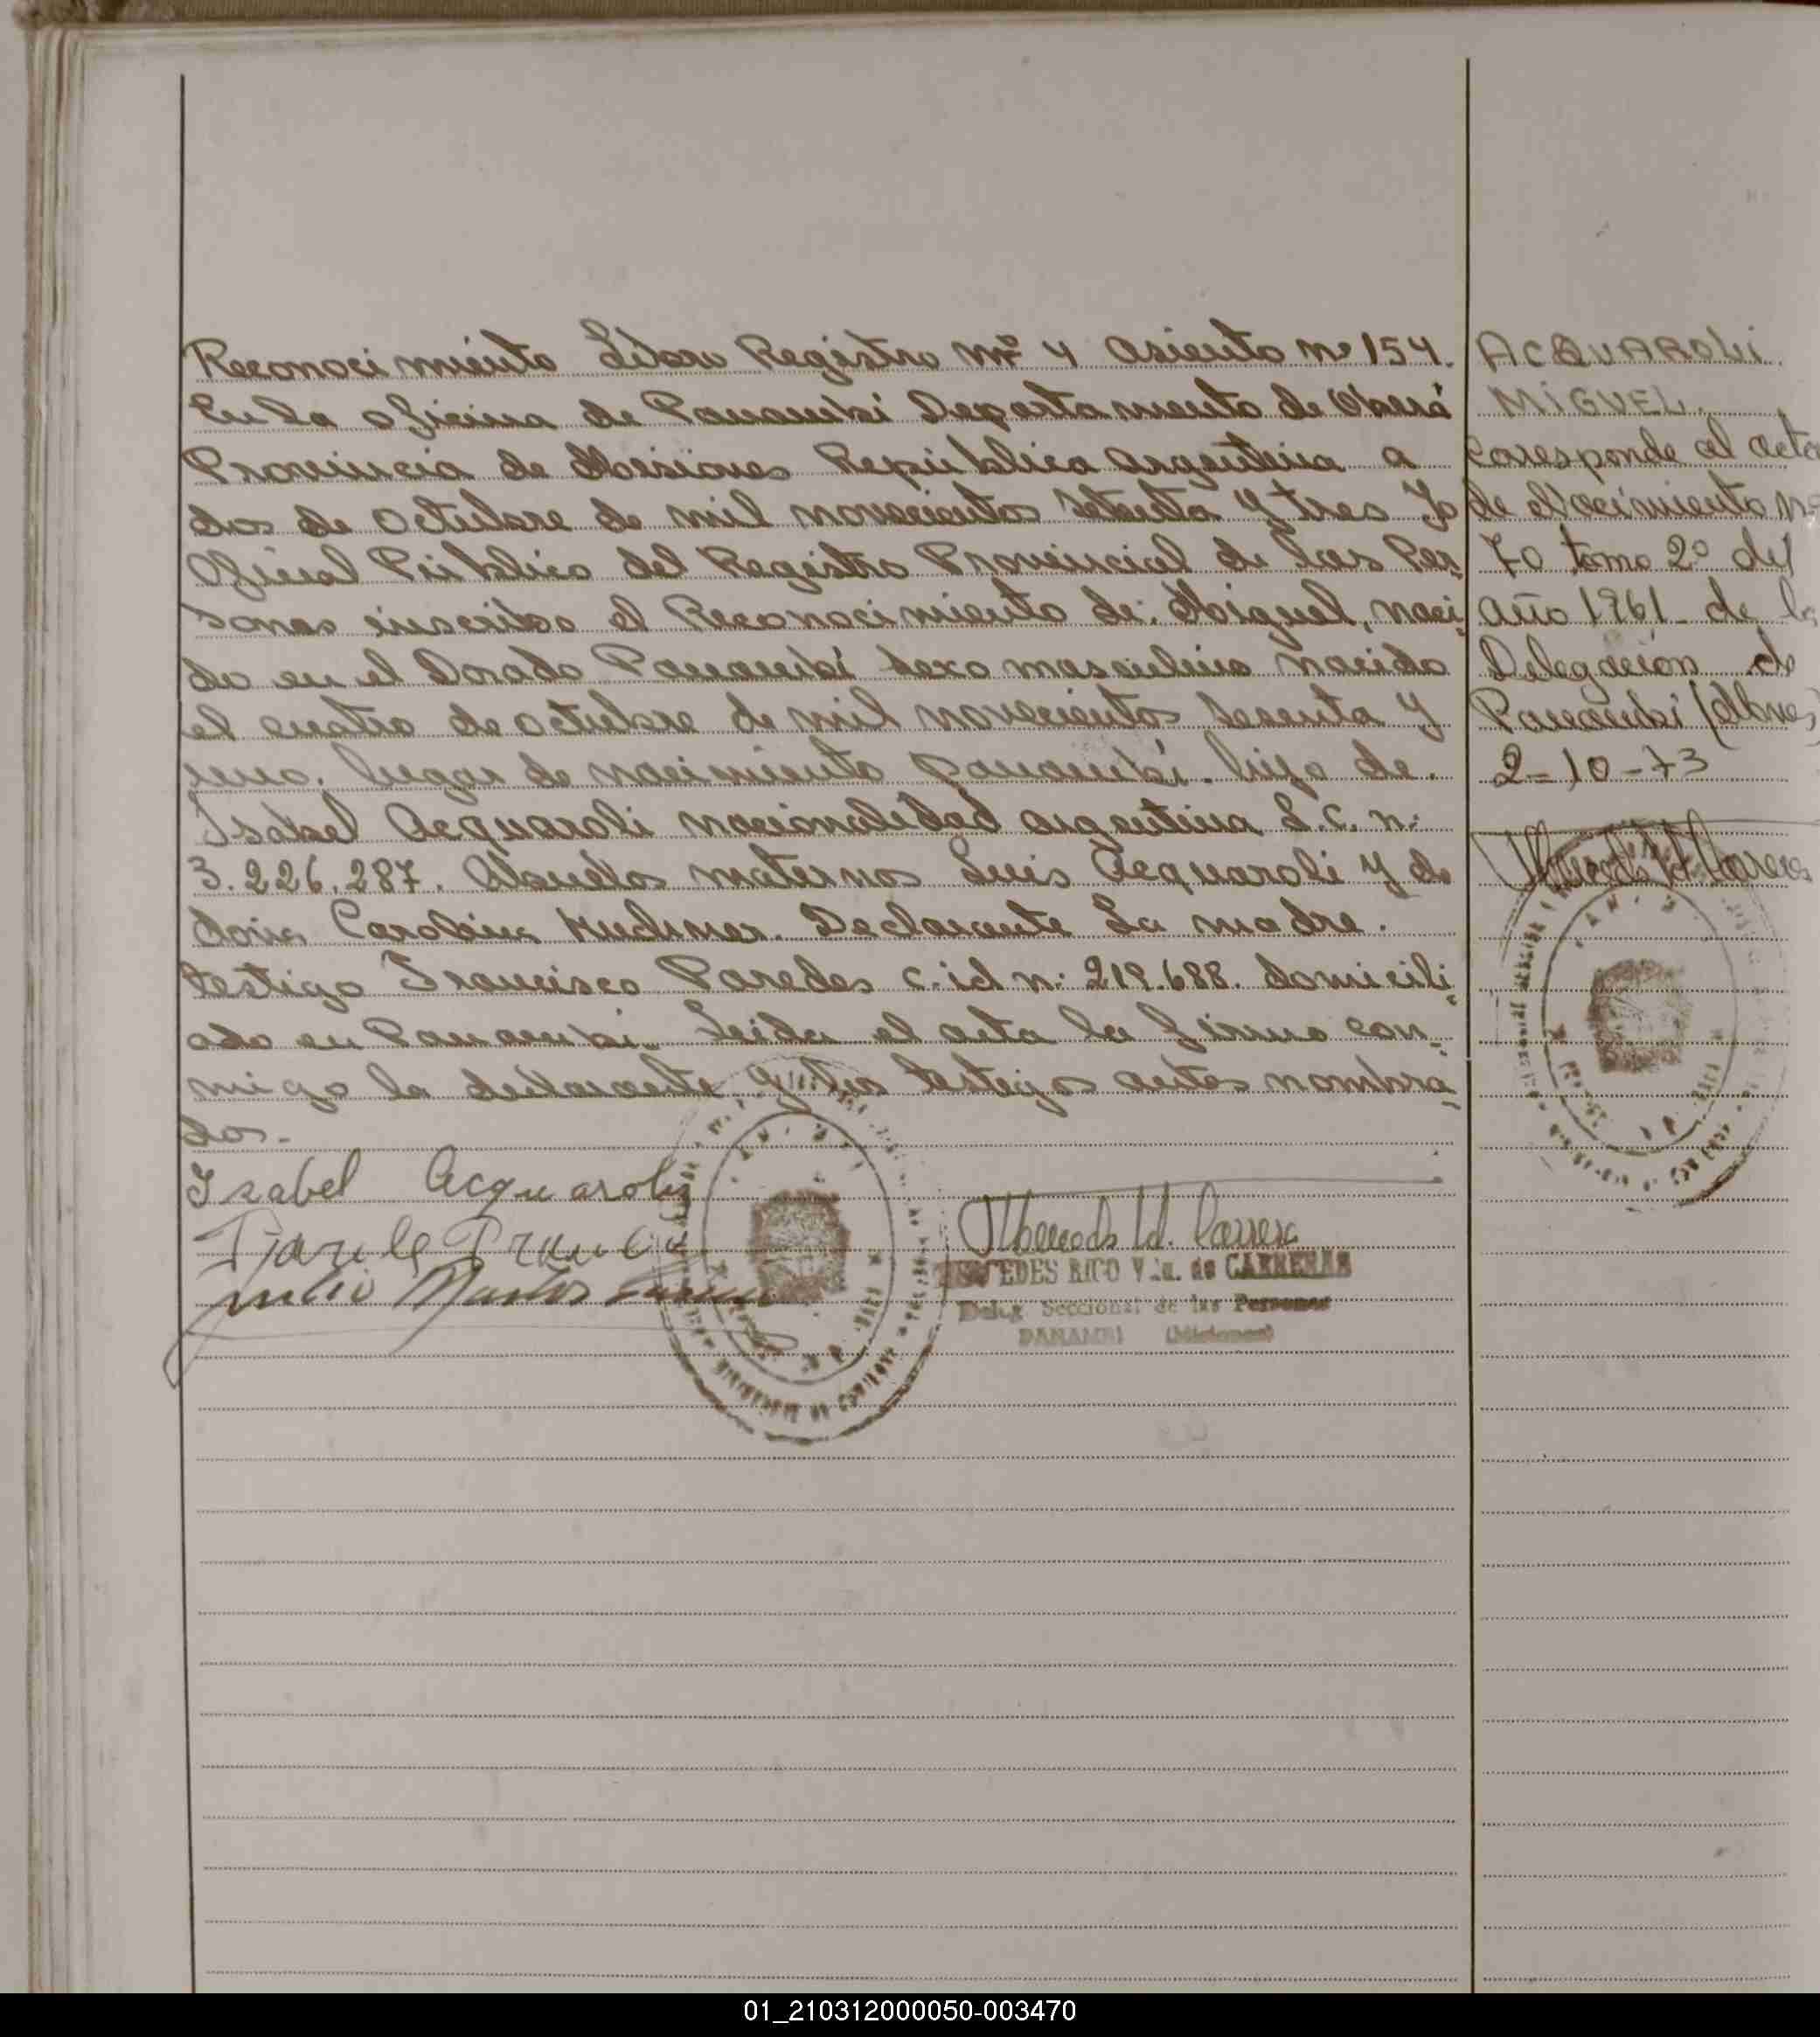 Reconocimiento Libro Registro Nº 4 asiento nº 154.
En la oficina de Panambí Departamento de Oberá
Provincia de Misiones República argentina a
dos de octubre de mil novecientos setenta y tres Yo
Oficial Público del Registro Provincial de las Per-
sonas inscribo el Reconocimiento de: Miguel, naci-
do en el Dorado Panambí sexo masculino nacido
el cuatro de octubre de mil novecientos sesenta y
uno. lugar de nacimiento panambí. hijo de.
Isabel Acquaroli nacionalidad argentina L.C. n:
3.226.287. Abuelos maternos Luis Acquaroli y de
doña Carolina. Declarante La madre.
testigo Francisco Paredes c.id n: 219.688. domicili-
ado en Panambi. Leida el acta la firma con-
migo la declarante y los testigos antes nombra-
dos.-
Isabel Acquaroli
Julio
MERCEDES RICO Vda. de CARRERAS
Deleg. Seccional de las Personas
PANAMBI (Misiones)
ACQUAROLI
MIGUEL.
Corresponde al acta
de Nacimiento nº
70 tomo 2º del
año 1961 - de la
Delegación de
Panambi (Mnes)
2-10-73
01_210312000050-003470